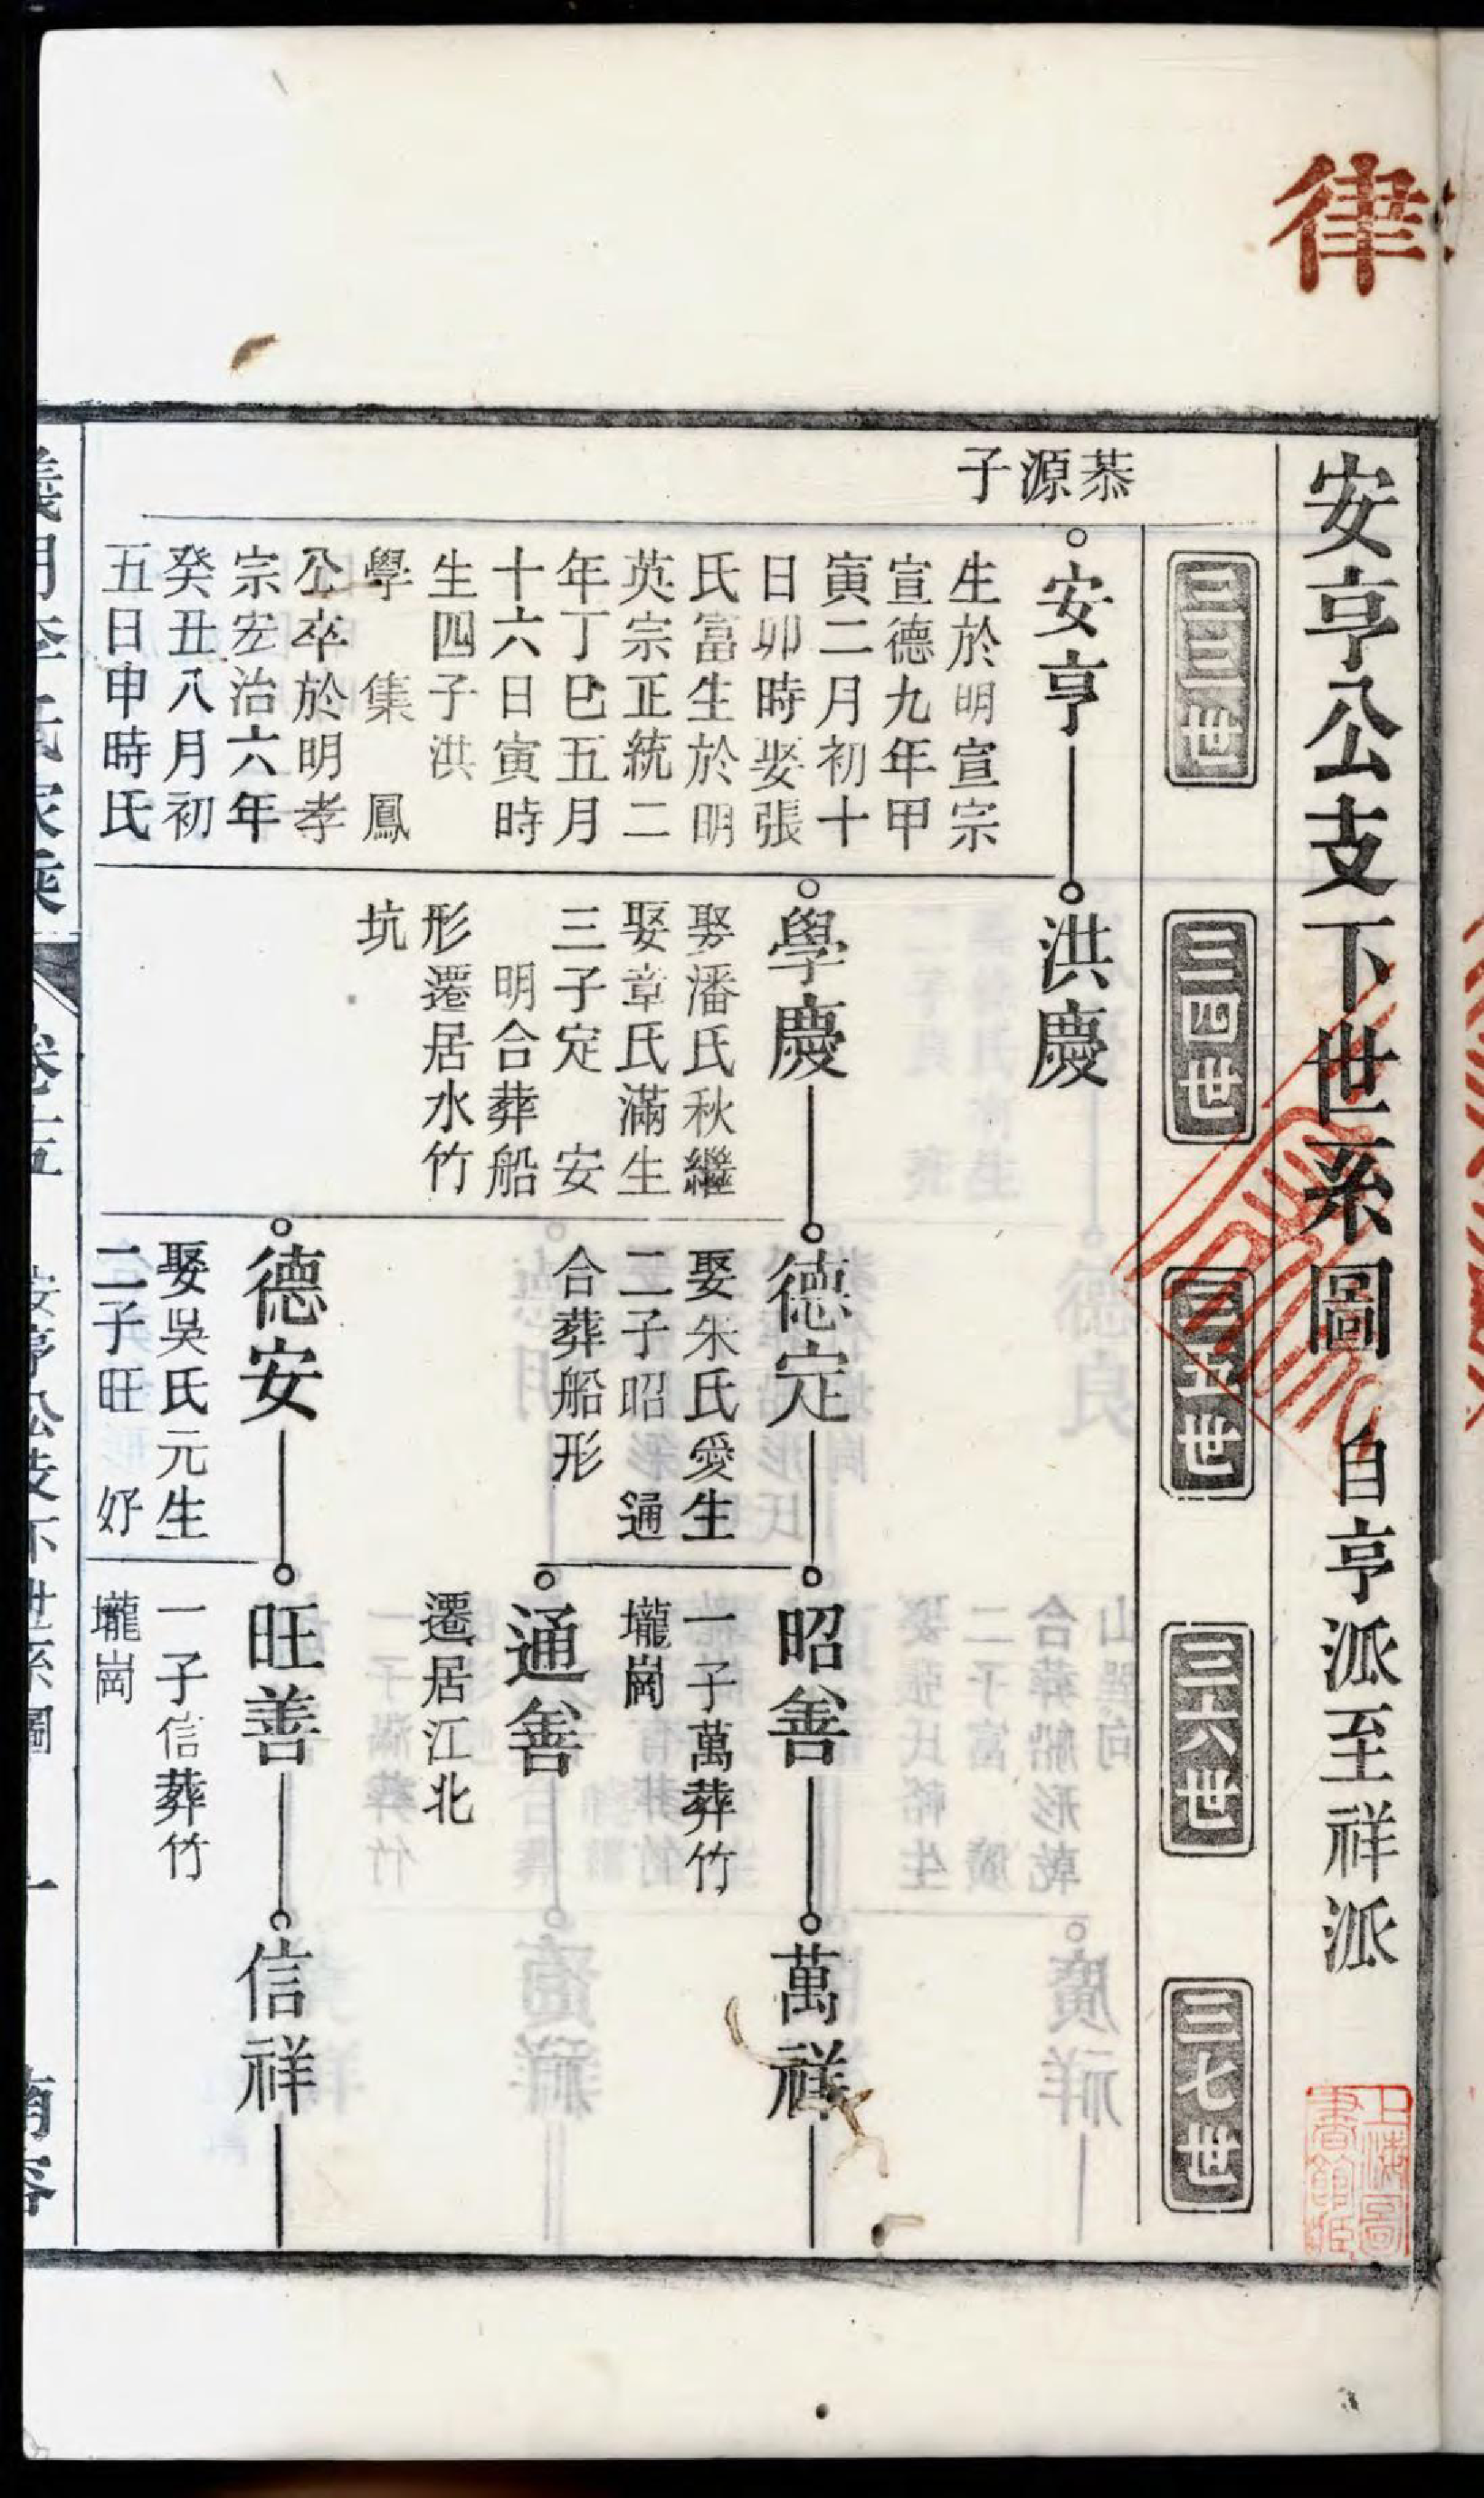 律
安亨公支下世系圖 自亨派至祥派
三三世
三四世
三五世
三六世
三七世
恭源子
安亨
生於明宣宗
宣德九年甲
寅二月初十
日卯時娶張
氏富生於明
英宗正統二
年丁巳五月
十六日寅時
生四子洪
學 集 鳳
公卒於明孝
宗宏治六年
癸丑八月初
五日申時氏
洪慶
學慶
娶潘氏秋繼
娶章氏滿生
三子定 安
明合葬船
形遷居水竹
坑
德定
娶朱氏愛生
二子昭 通
合葬船形
德安
娶吳氏元生
二子旺 好
昭善
一子萬葬竹
壠崗
通善
遷居江北
旺善
一子信葬竹
壠崗
萬祥
信祥
上海圖書館藏